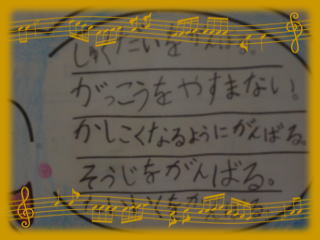 しゅくだいを
がっこうをやすまない。
かしこくなるようにがんばる。
そうじをがんばる。